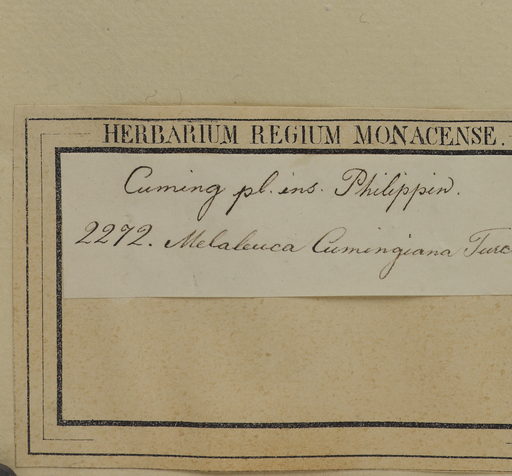 HERBARIUM REGIUM MONACENSE.
Cuming pl. ins. Philippin.
2272. Melaleuca Cumingiana Turc